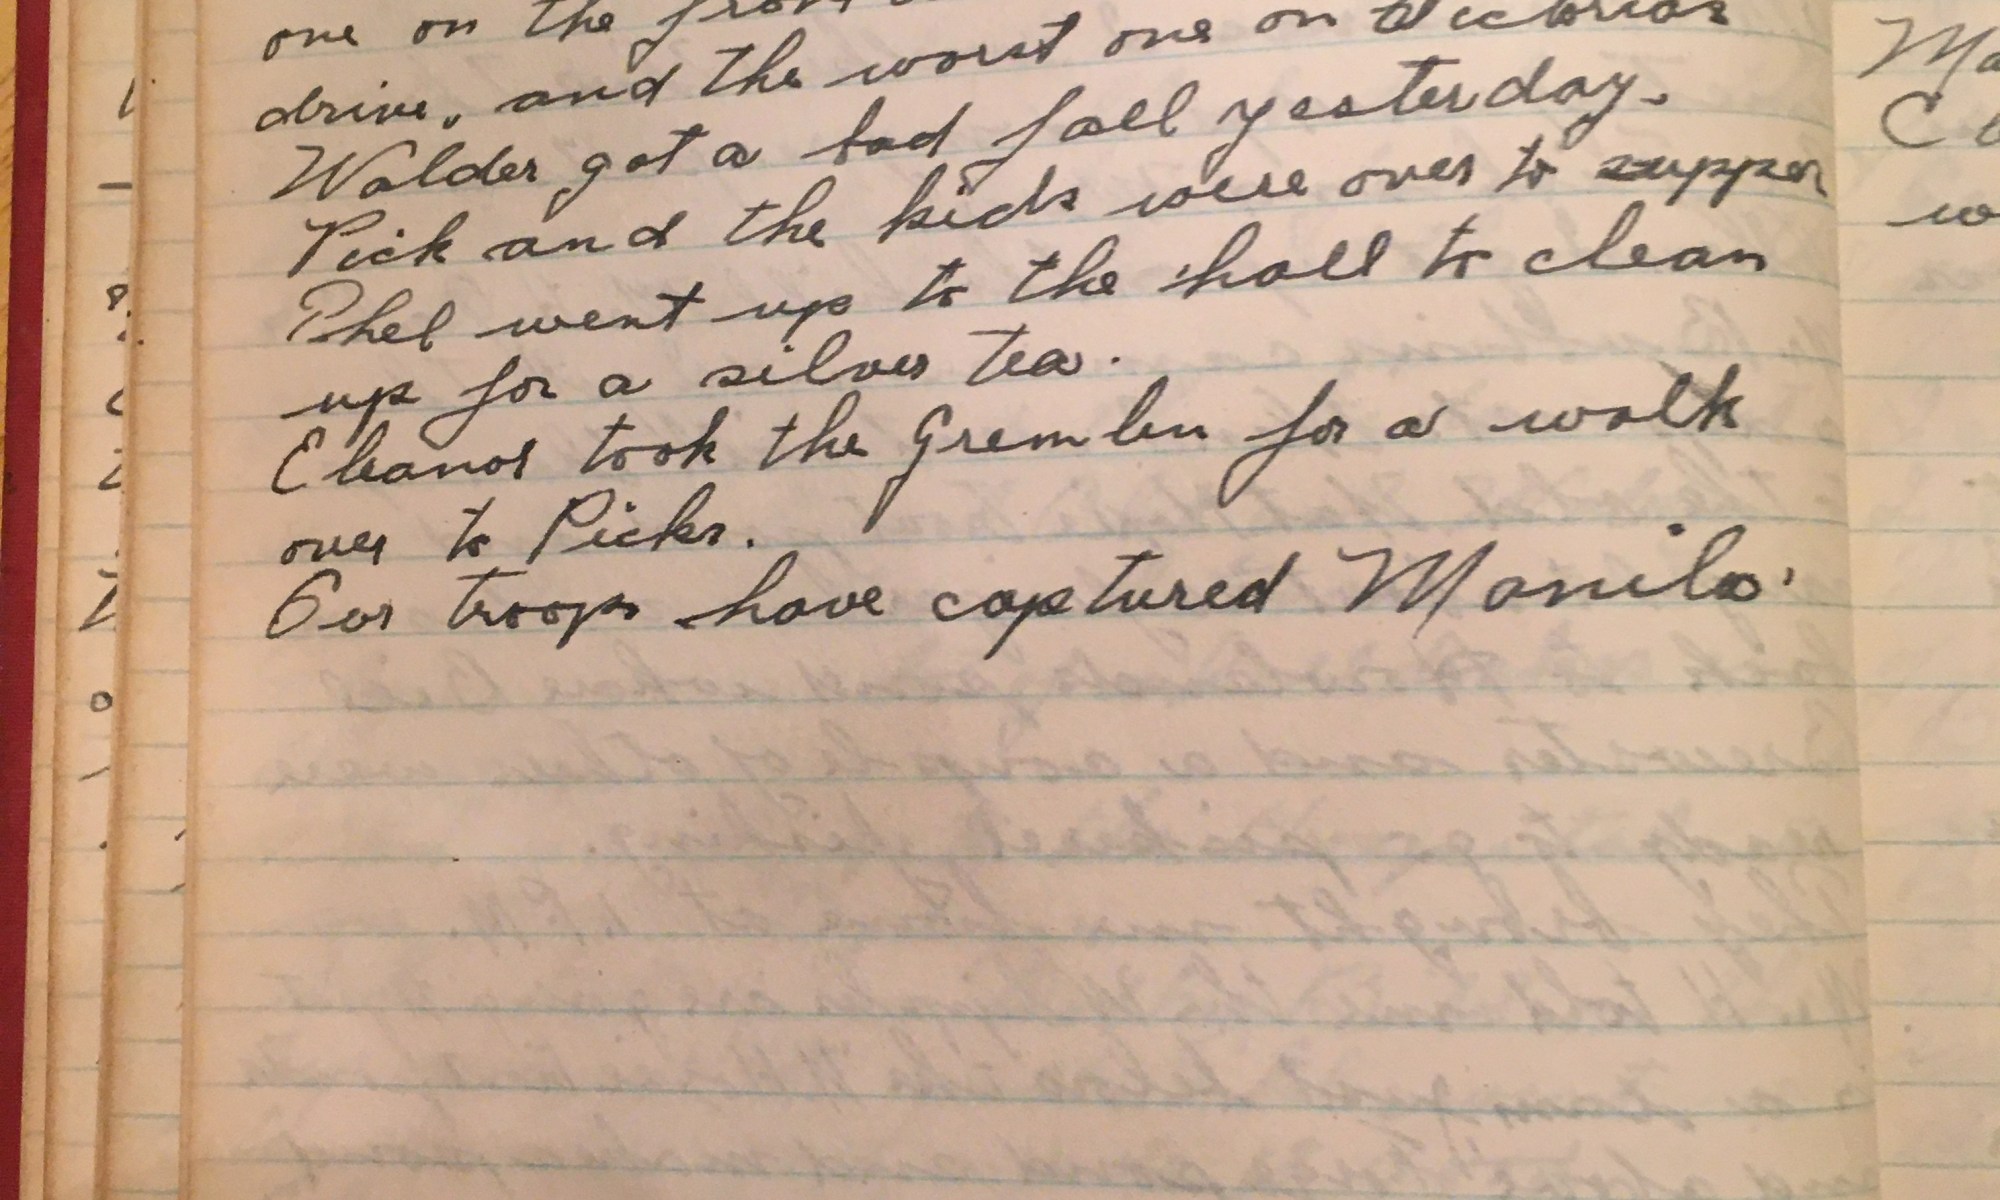 one on the front
drive, and the worst one on Victorias
Walder got a bad fall yesterday.
Pick and the kids were over to supper
Phel went up to the hall to clean
up for a silver tea.
Eleanor took the Gremlin for a walk
over to Picks.
Our troops have captured Manila.
Ma
C